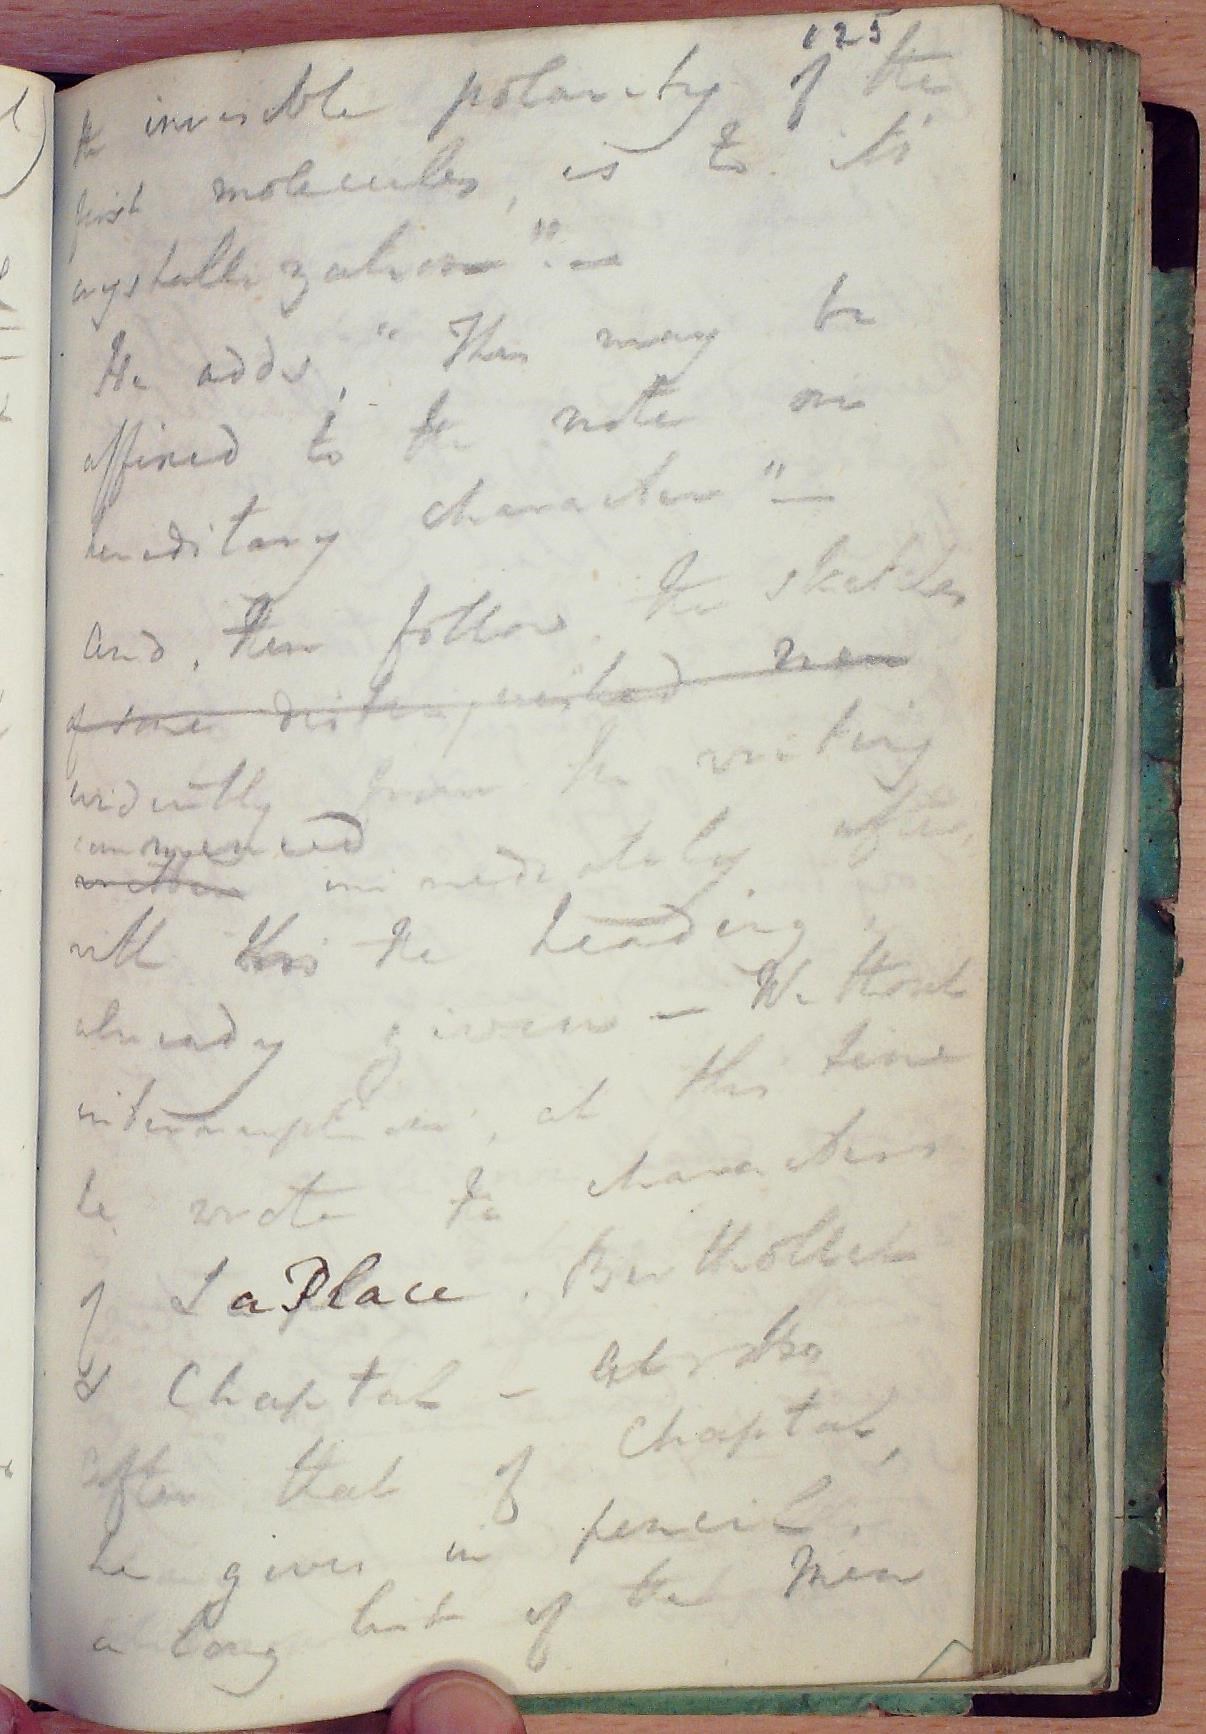 125
the invisible polarity of the
first molecules, is to its
crystallization". —
He adds, "This may be
affixed to the note on
hereditary character" —
And, then follow, the sketches
of some distinguished men
evidently from the writing
commenced
written immediately after,
with this the heading
already given — Without
interruption, at this time
he wrote the characters
of LaPlace, Berthollet
& Chaptal —
after that of Chaptal,
he gives in pencil,
a long list of the Men